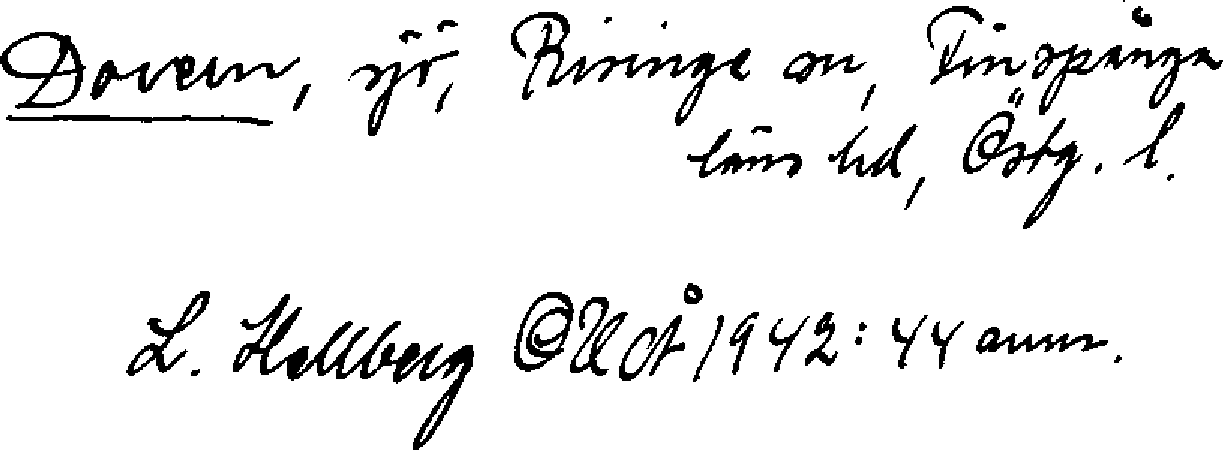 Dovern, sjö, Risinge sn, Finspånga
läns hd, Östg. l.
L. Hellberg OUÅ 1942:44 anm.